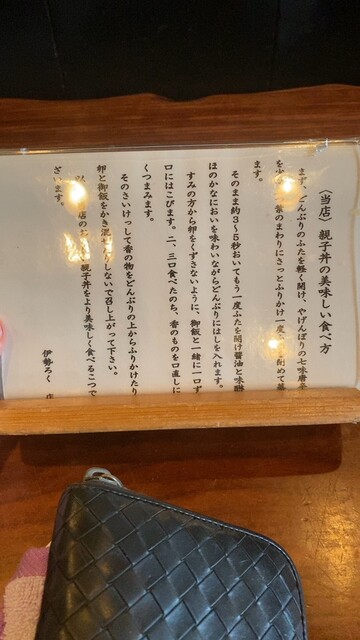 〈当店〉親子丼の美味しい食べ方
まず、どんぶりのふたを軽く開け、やげんぼりの七味唐辛
を少 のまわりにさっとふりかけ一度 閉めて
ます。
そのまま約3〜5秒おいてもう一度ふたを開け醤油と味醂
ほのかなにおいを味わいながらどんぶりにはしを入れます。
すみの方から卵をくずさないように、御飯と一緒に一口ず
口にはこびます。二、三口食べたのち、香のものを口直しに
くつまみます。
そのさいけっして香の物をどんぶりの上からふりかけたり
卵と御飯をかき混 たりしないで召し上がって下さい。
店の 親子丼をより美味しく食べるこつで
ざいます。
伊勢ろく 店